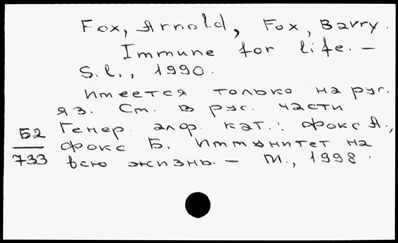 Fox, Arnold, Fox, Barry.
Immune for life. –
S.l., 1990.
Имеется только на рус.
яз. См. в рус. части
Генер. алф. кат.: Фокс А.,
Фокс Б. Иммунитет на
всю жизнь. – М., 1998.
Б2
733